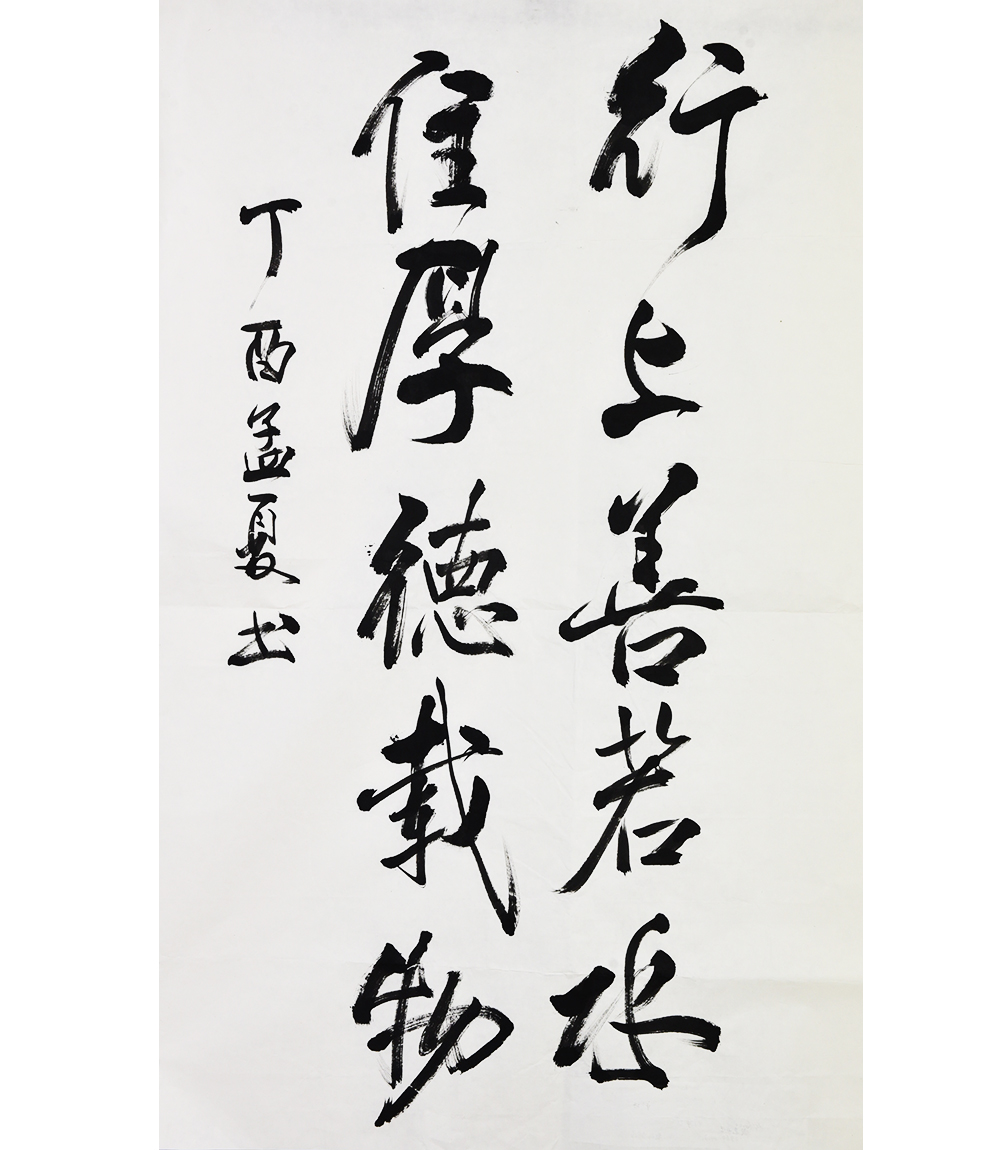 行上善若水
住厚德载物
丁酉孟夏书